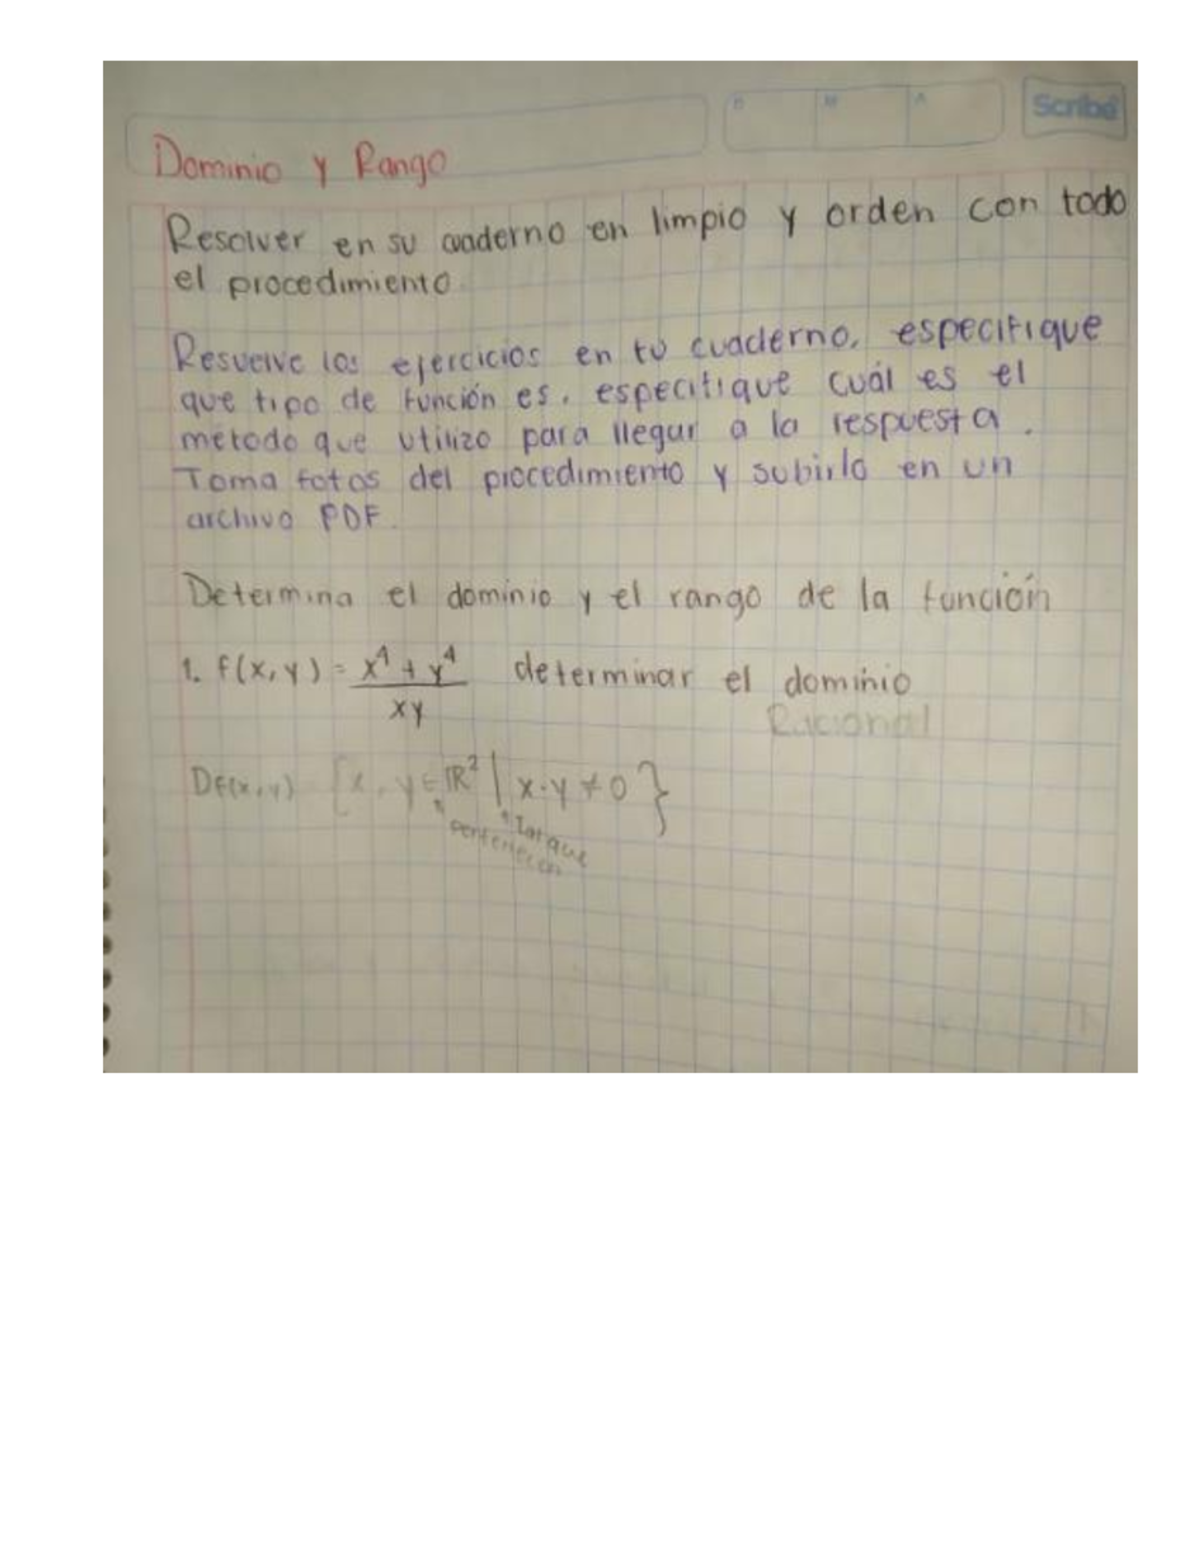 D M A Scribe
Dominio y Rango
Resolver en su cuaderno en limpio y orden con todo
el procedimiento.
Resuelve los ejercicios en tu cuaderno, especifique
que tipo de función es, especifique cuál es el
metodo que utilizo para llegar a la respuesta.
Toma fotos del procedimiento y subirlo en un
archivo PDF.
Determina el dominio y el rango de la función
1. f(x,y) = x⁴ + y⁴ determinar el dominio
xy
Racional
Df(x,y) {x, y ∈ ℝ² | x·y ≠ 0}
pertenecen
Tal que